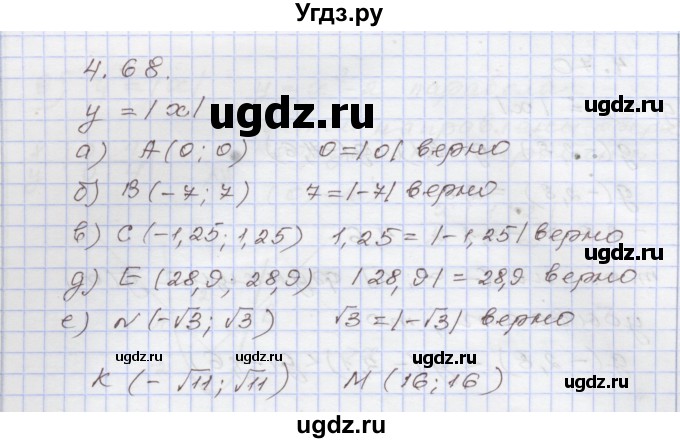 Угдз.ру
4.68.
y = |x|
ugdz.ru
а) A(0; 0) 0=|0| верно
б) B(-7; 7) 7=|-7| верно
ugdz.ru
ugdz.ru
в) C(-1,25; 1,25) 1,25=|-1,25| верно
ugdz.ru
ugdz.ru
д) E(28,9; 28,9) |28,9|=28,9 верно
е) N(-√3; √3) √3=|-√3| верно
ugdz.ru
ugdz.ru
K(-√11; √11) M(16; 16)
ugdz.ru
ugdz.ru